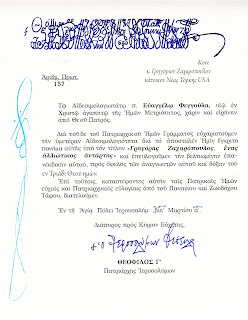 Κον
κ. Γρηγόριον Ζαχαρόπουλον
κάτοικον Νέας Ὑόρκης USA
Ἀριθμ. Πρωτ.
157
Τῷ Αἰδεσιμολογιωτάτῳ π. Εὐαγγέλῳ Φεγγούλᾳ, υἱῷ ἐν
Χριστῷ ἀγαπητῷ τῆς Ἡμῶν Μετριότητος, χάριν καὶ εἰρήνην
ἀπὸ Θεοῦ Πατρός.
Διὰ τοῦδε τοῦ Πατριαρχικοῦ Ἡμῶν Γράμματος εὐχαριστοῦμεν
τὴν ὑμετέραν Αἰδεσιμολογιότητα διὰ τὸ ἀποσταλὲν Ἡμῖν ἔγκριτο
πονημα αὐτῆς ὑπὸ τὸν τίτλον «Γρηγόρης Ζαχαρόπουλος, ἕνας
ἀλλιώτικος ἀντάρτης» καὶ ἐπευλογοῦμεν τὴν βελτιωμένην ἐπα-
νέκδοσιν αὐτοῦ, πρὸς ὄφελος τῶν ἀναγνωστῶν αὐτοῦ καὶ δόξαν τοῦ
ἐν Τριάδι Θεοῦ ἡμῶν.
Ἐπὶ τούτοις, καταστέφοντες αὐτὴν ταῖς Πατρικαῖς Ἡμῶν
εὐχαῖς καὶ Πατριαρχικαῖς εὐλογίαις ἀπὸ τοῦ Παναγίου καὶ Ζωοδόχου
Τάφου, διατελοῦμεν.
Ἐν τῇ Ἁγίᾳ Πόλει Ἱερουσαλὴμ Μαρτίου
Διάπυρος πρὸς Κύριον Εὐχέτης,
ΘΕΟΦΙΛΟΣ Γ΄
Πατριάρχης Ἱεροσολύμων